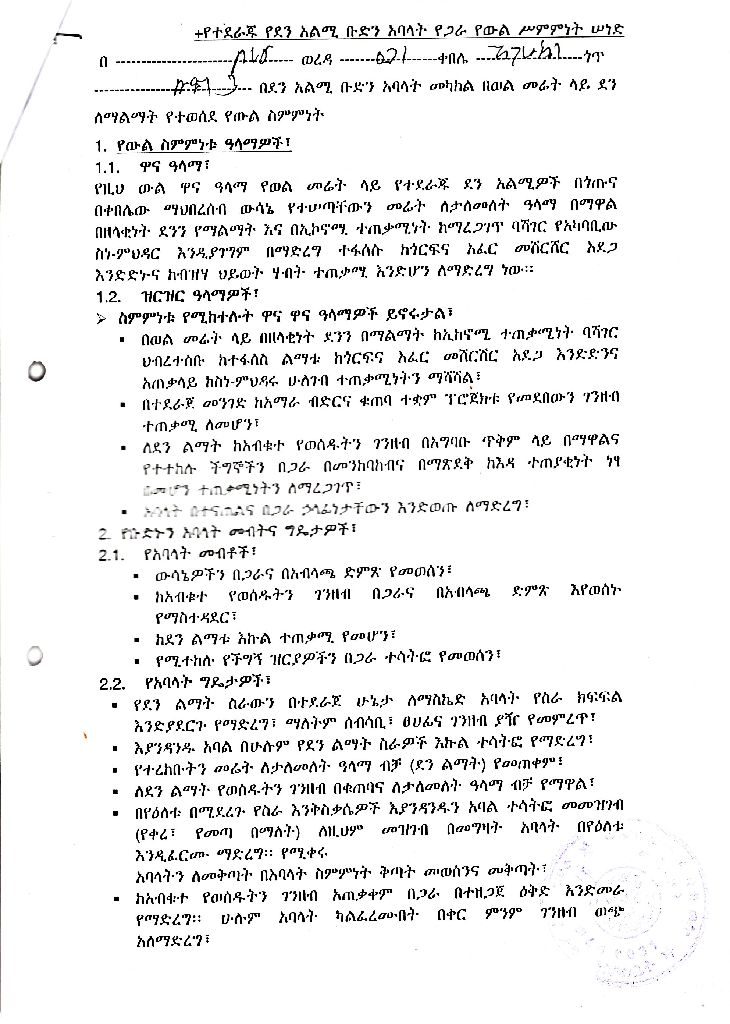 +የተደራጁ የደን አልሚ ቡድን አባላት የጋራ የውል ሥምምነት ሠነድ
በ ---------- ወረዳ ---------- ቀበሌ ---------- ጎጥ
---------- በደን አልሚ ቡድን አባላት መካከል በወል መሬት ላይ ደን
ለማልማት የተወሰደ የውል ስምምነት
1. የውል ስምምነቱ ዓላማዎች፣
1.1. ዋና ዓላማ፣
የዚህ ውል ዋና ዓላማ የወል መሬት ላይ የተደራጁ ደን አልሚዎች በጎጡና
በቀበሌው ማህበረሰብ ውሳኔ የተሠጣቸውን መሬት ለታለመለት ዓላማ በማዋል
በዘላቂነት ደንን የማልማት እና በኢኮኖሚ ተጠቃሚነት ከማረጋገጥ ባሻገር የአካባቢው
ስነ-ምህዳር እንዲያገግም በማድረግ ተፋሰሱ ከጎርፍና አፈር መሸርሸር አደጋ
እንድድኑና ከብዝሃ ህይወት ሃብት ተጠቃሚ እንድሆን ለማድረግ ነው።
1.2. ዝርዝር ዓላማዎች፣
➢ ስምምነቱ የሚከተሉት ዋና ዋና ዓላማዎች ይኖሩታል፣
▪ በወል መሬት ላይ በዘላቂነት ደንን በማልማት ከኢኮኖሚ ተጠቃሚነት ባሻገር
ህብረተሰቡ ከተፋሰስ ልማቱ ከጎርፍና አፈር መሸርሸር አደጋ እንድድንና
አጠቃላይ ከስነ-ምህዳሩ ሁለገብ ተጠቃሚነትን ማሻሻል፣
▪ በተደራጀ መንገድ ከአማራ ብድርና ቁጠባ ተቋም ፕሮጀክቱ የመደበውን ገንዘብ
ተጠቃሚ ለመሆን፣
▪ ለደን ልማት ከአብቁተ የወሰዱትን ገንዘብ በአግባቡ ጥቅም ላይ በማዋልና
የተተከሉ ችግኞችን በጋራ በመንከባከብና በማጽደቅ ከእዳ ተጠያቂነት ነፃ
በመሆን ተጠቃሚነትን ለማረጋገጥ፣
▪ አባላት በተናጠልና በጋራ ኃላፊነታቸውን እንድወጡ ለማድረግ፣
2. የቡድኑን አባላት መብትና ግዴታዎች፣
2.1. የአባላት መብቶች፣
▪ ውሳኔዎችን በጋራና በአብላጫ ድምጽ የመወሰን፣
▪ ከአብቁተ የወሰዱትን ገንዘብ በጋራና በአብላጫ ድምጽ እየወሰኑ
የማስተዳደር፣
▪ ከደን ልማቱ እኩል ተጠቃሚ የመሆን፣
▪ የሚተከሉ የችግኝ ዝርያዎችን በጋራ ተሳትፎ የመወሰን፣
2.2. የአባላት ግዴታዎች፣
▪ የደን ልማት ስራውን በተደራጀ ሁኔታ ለማስኬድ አባላት የስራ ክፍፍል
እንድያደርጉ የማድረግ፣ ማለትም ሰብሳቢ፣ ፀሀፊና ገንዘብ ያዥ የመምረጥ፣
▪ እያንዳንዱ አባል በሁሉም የደን ልማት ስራዎች እኩል ተሳትፎ የማድረግ፣
▪ የተረከቡትን መሬት ለታለመለት ዓላማ ብቻ (ደን ልማት) የመጠቀም፣
▪ ለደን ልማት የወሰዱትን ገንዘብ በቁጠባና ለታለመለት ዓላማ ብቻ የማዋል፣
▪ በየዕለቱ በሚደረጉ የስራ እንቅስቃሴዎች እያንዳንዱን አባል ተሳትፎ መመዝገብ
(የቀረ፣ የመጣ በማለት) ለዚህም መዝገብ በመግዛት አባላት በየዕለቱ
እንዲፈርሙ ማድረግ። የሚቀሩ
አባላትን ለመቅጣት በአባላት ስምምነት ቅጣት መወሰንና መቅጣት፣
▪ ከአብቁተ የወሰዱትን ገንዘብ አጠቃቀም በጋራ በተዘጋጀ ዕቅድ እንድመራ
የማድረግ። ሁሉም አባላት ካልፈረሙበት በቀር ምንም ገንዘብ ወጭ
አለማድረግ፣